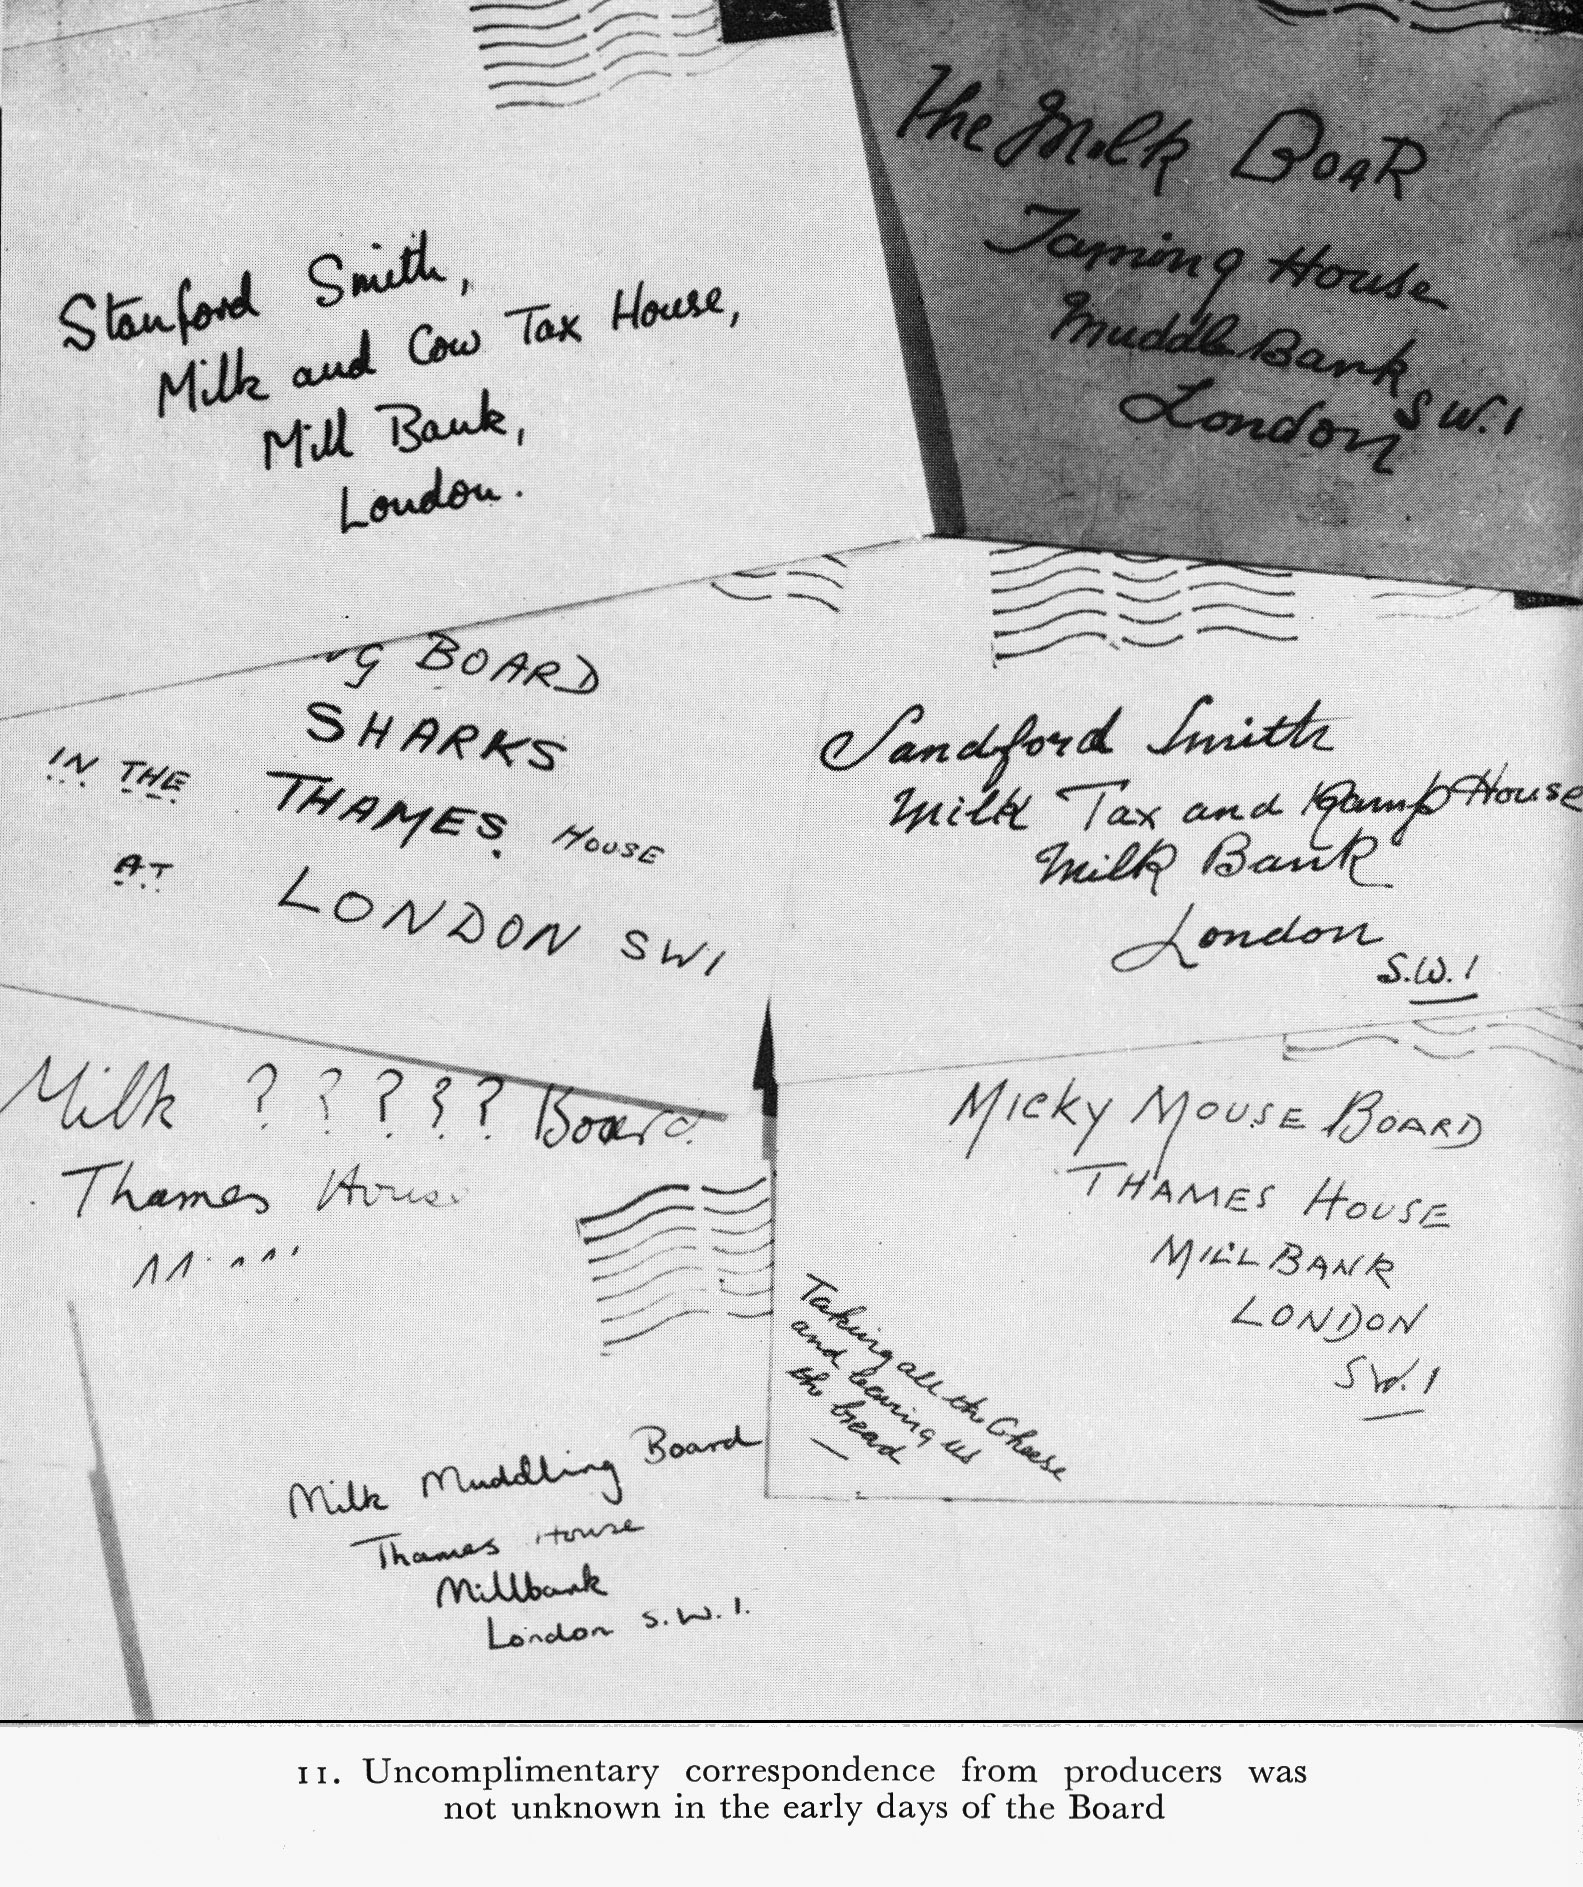 Stanford Smith,
Milk and Cow Tax House,
Mill Bank,
London.
The Milk BoaR
Taming House
Muddle Bank
London S W. 1
G BOARD
SHARKS
IN THE THAMES. HOUSE
AT LONDON SW1
Sandford Smith
Milk Tax and House
Milk Bank
London
S.W. 1
Milk ? ? ? ? ? Board.
Thames House
MICKY MOUSE BOARD
THAMES HOUSE
MILLBANK
LONDON
SW. 1
Taking all the Cheese
and leaving us
the bread
Milk Muddling Board
Thames House
Millbank
London S.W. 1.
11. Uncomplimentary correspondence from producers was
not unknown in the early days of the Board